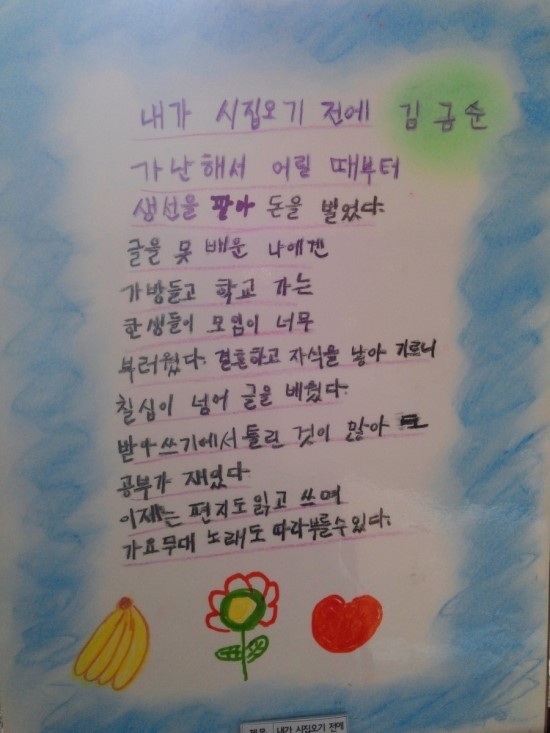 내가 시집오기 전에 김금순
가난해서 어릴 때부터
생선을 팔아 돈을 벌었다.
글을 못 배운 나에겐
가방들고 학교 가는
한생들이 모염이 너무
부러웠다. 결혼하고 자식을 낳아 기르니
칠십이 넘어 글을 배웠다.
받아쓰기에서 틀린 것이 많아
공부가 재밌다
이제는 편지도 읽고 쓰며
가요무대 노래도 따라부를수있다.
제목 내가 시집오기 전에